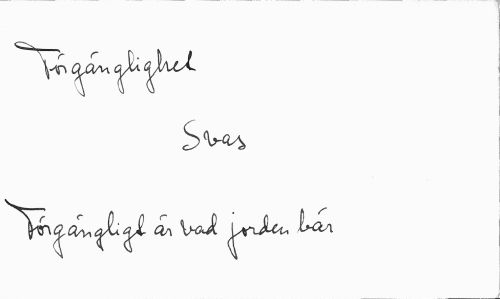 Förgänglighet
Svas
Förgängligt är vad jorden bär